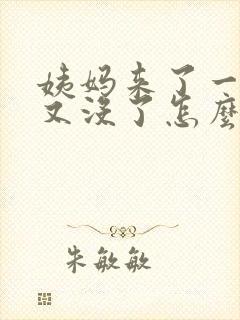 姨妈来了一
又没了怎麽
朱敏敏